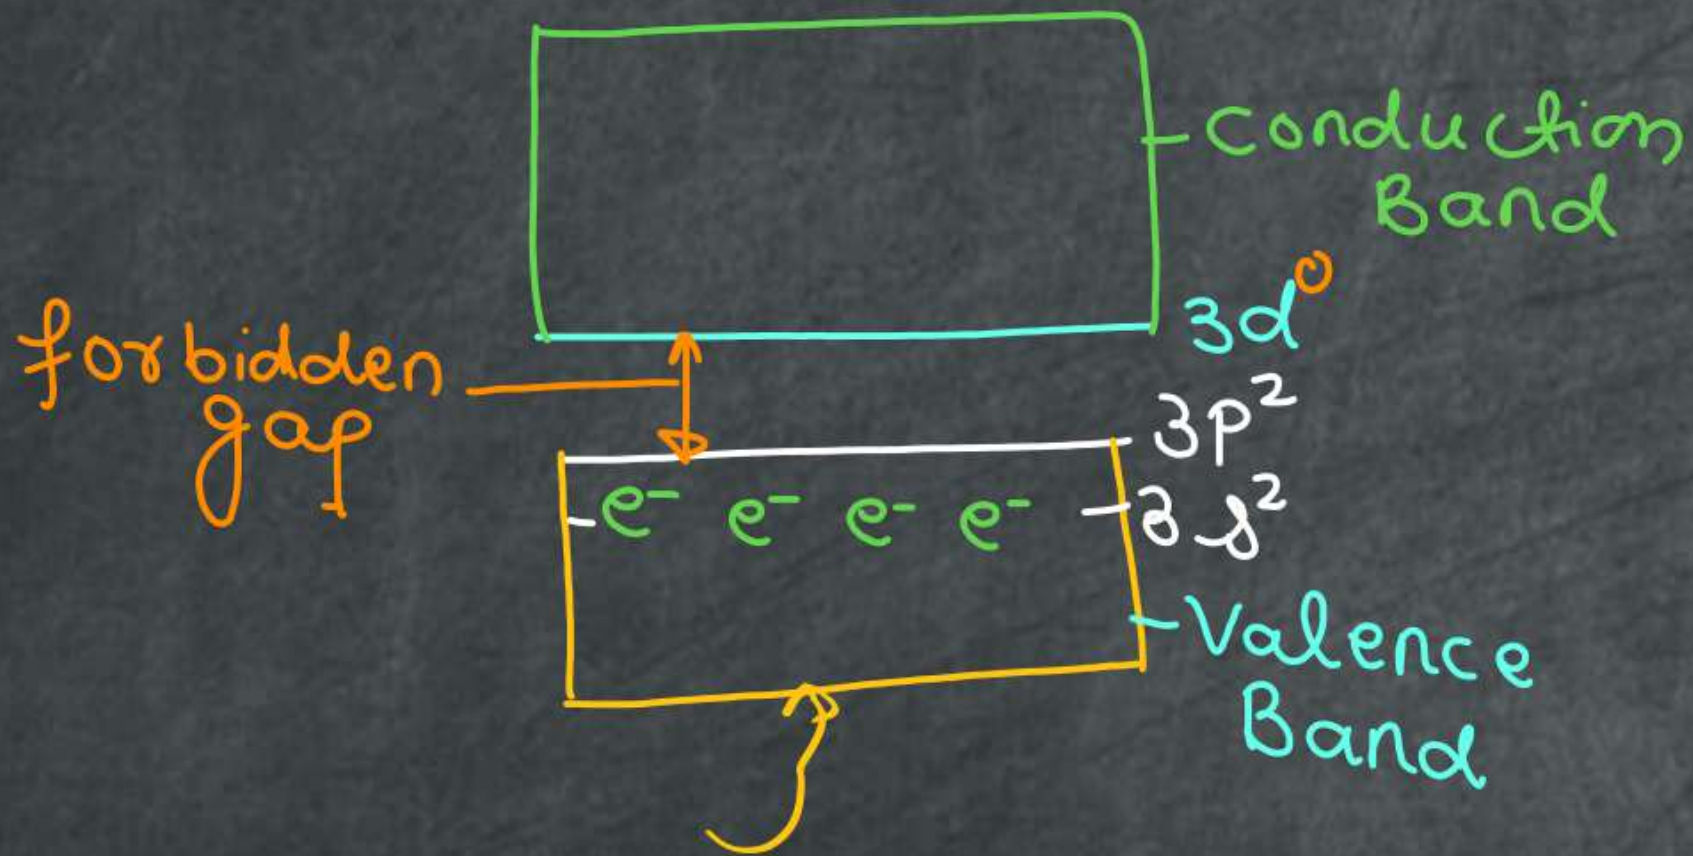 Conduction
Band
3d⁰
forbidden
gap
3p²
e⁻ e⁻ e⁻ e⁻
3s²
Valence
Band